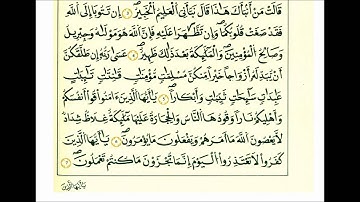 قَالَتْ مَنْ أَنۢبَأَكَ هَٰذَا قَالَ نَبَّأَنِيَ ٱلْعَلِيمُ ٱلْخَبِيرُ ٣ إِن تَتُوبَآ إِلَى ٱللَّهِ
فَقَدْ صَغَتْ قُلُوبُكُمَا وَإِن تَظَّٰهَرَا عَلَيْهِ فَإِنَّ ٱللَّهَ هُوَ مَوْلَىٰهُ وَجِبْرِيلُ
وَصَٰلِحُ ٱلْمُؤْمِنِينَ وَٱلْمَلَٰٓئِكَةُ بَعْدَ ذَٰلِكَ ظَهِيرٌ ٤ عَسَىٰ رَبُّهُۥٓ إِن طَلَّقَكُنَّ
أَن يُبْدِلَهُۥٓ أَزْوَٰجًا خَيْرًا مِّنكُنَّ مُسْلِمَٰتٍ مُّؤْمِنَٰتٍ قَٰنِتَٰتٍ تَٰٓئِبَٰتٍ
عَٰبِدَٰتٍ سَٰٓئِحَٰتٍ ثَيِّبَٰتٍ وَأَبْكَارًا ٥ يَٰٓأَيُّهَا ٱلَّذِينَ ءَامَنُوا۟ قُوٓا۟ أَنفُسَكُمْ
وَأَهْلِيكُمْ نَارًا وَقُودُهَا ٱلنَّاسُ وَٱلْحِجَارَةُ عَلَيْهَا مَلَٰٓئِكَةٌ غِلَاظٌ شِدَادٌ
لَّا يَعْصُونَ ٱللَّهَ مَآ أَمَرَهُمْ وَيَفْعَلُونَ مَا يُؤْمَرُونَ ٦ يَٰٓأَيُّهَا ٱلَّذِينَ
كَفَرُوا۟ لَا تَعْتَذِرُوا۟ ٱلْيَوْمَ إِنَّمَا تُجْزَوْنَ مَا كُنتُمْ تَعْمَلُونَ ٧
يَٰٓأَيُّهَا ٱلَّذِينَ